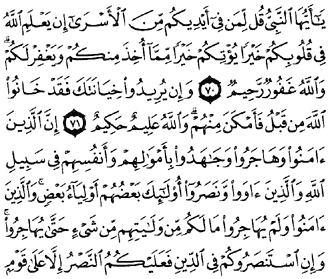 يَٰٓأَيُّهَا ٱلنَّبِيُّ قُل لِّمَن فِىٓ أَيْدِيكُم مِّنَ ٱلْأَسْرَىٰٓ إِن يَعْلَمِ ٱللَّهُ
فِى قُلُوبِكُمْ خَيْرًا يُؤْتِكُمْ خَيْرًا مِّمَّآ أُخِذَ مِنكُمْ وَيَغْفِرْ لَكُمْ ۗ
وَٱللَّهُ غَفُورٌ رَّحِيمٌ ٧٠ وَإِن يُرِيدُوا۟ خِيَانَتَكَ فَقَدْ خَانُوا۟
ٱللَّهَ مِن قَبْلُ فَأَمْكَنَ مِنْهُمْ ۗ وَٱللَّهُ عَلِيمٌ حَكِيمٌ ٧١ إِنَّ ٱلَّذِينَ
ءَامَنُوا۟ وَهَاجَرُوا۟ وَجَٰهَدُوا۟ بِأَمْوَٰلِهِمْ وَأَنفُسِهِمْ فِى سَبِيلِ
ٱللَّهِ وَٱلَّذِينَ ءَاوَوا۟ وَّنَصَرُوٓا۟ أُو۟لَٰٓئِكَ بَعْضُهُمْ أَوْلِيَآءُ بَعْضٍ ۚ وَٱلَّذِينَ
ءَامَنُوا۟ وَلَمْ يُهَاجِرُوا۟ مَا لَكُم مِّن وَلَٰيَتِهِم مِّن شَىْءٍ حَتَّىٰ يُهَاجِرُوا۟ ۚ
وَإِنِ ٱسْتَنصَرُوكُمْ فِى ٱلدِّينِ فَعَلَيْكُمُ ٱلنَّصْرُ إِلَّا عَلَىٰ قَوْمٍۭ